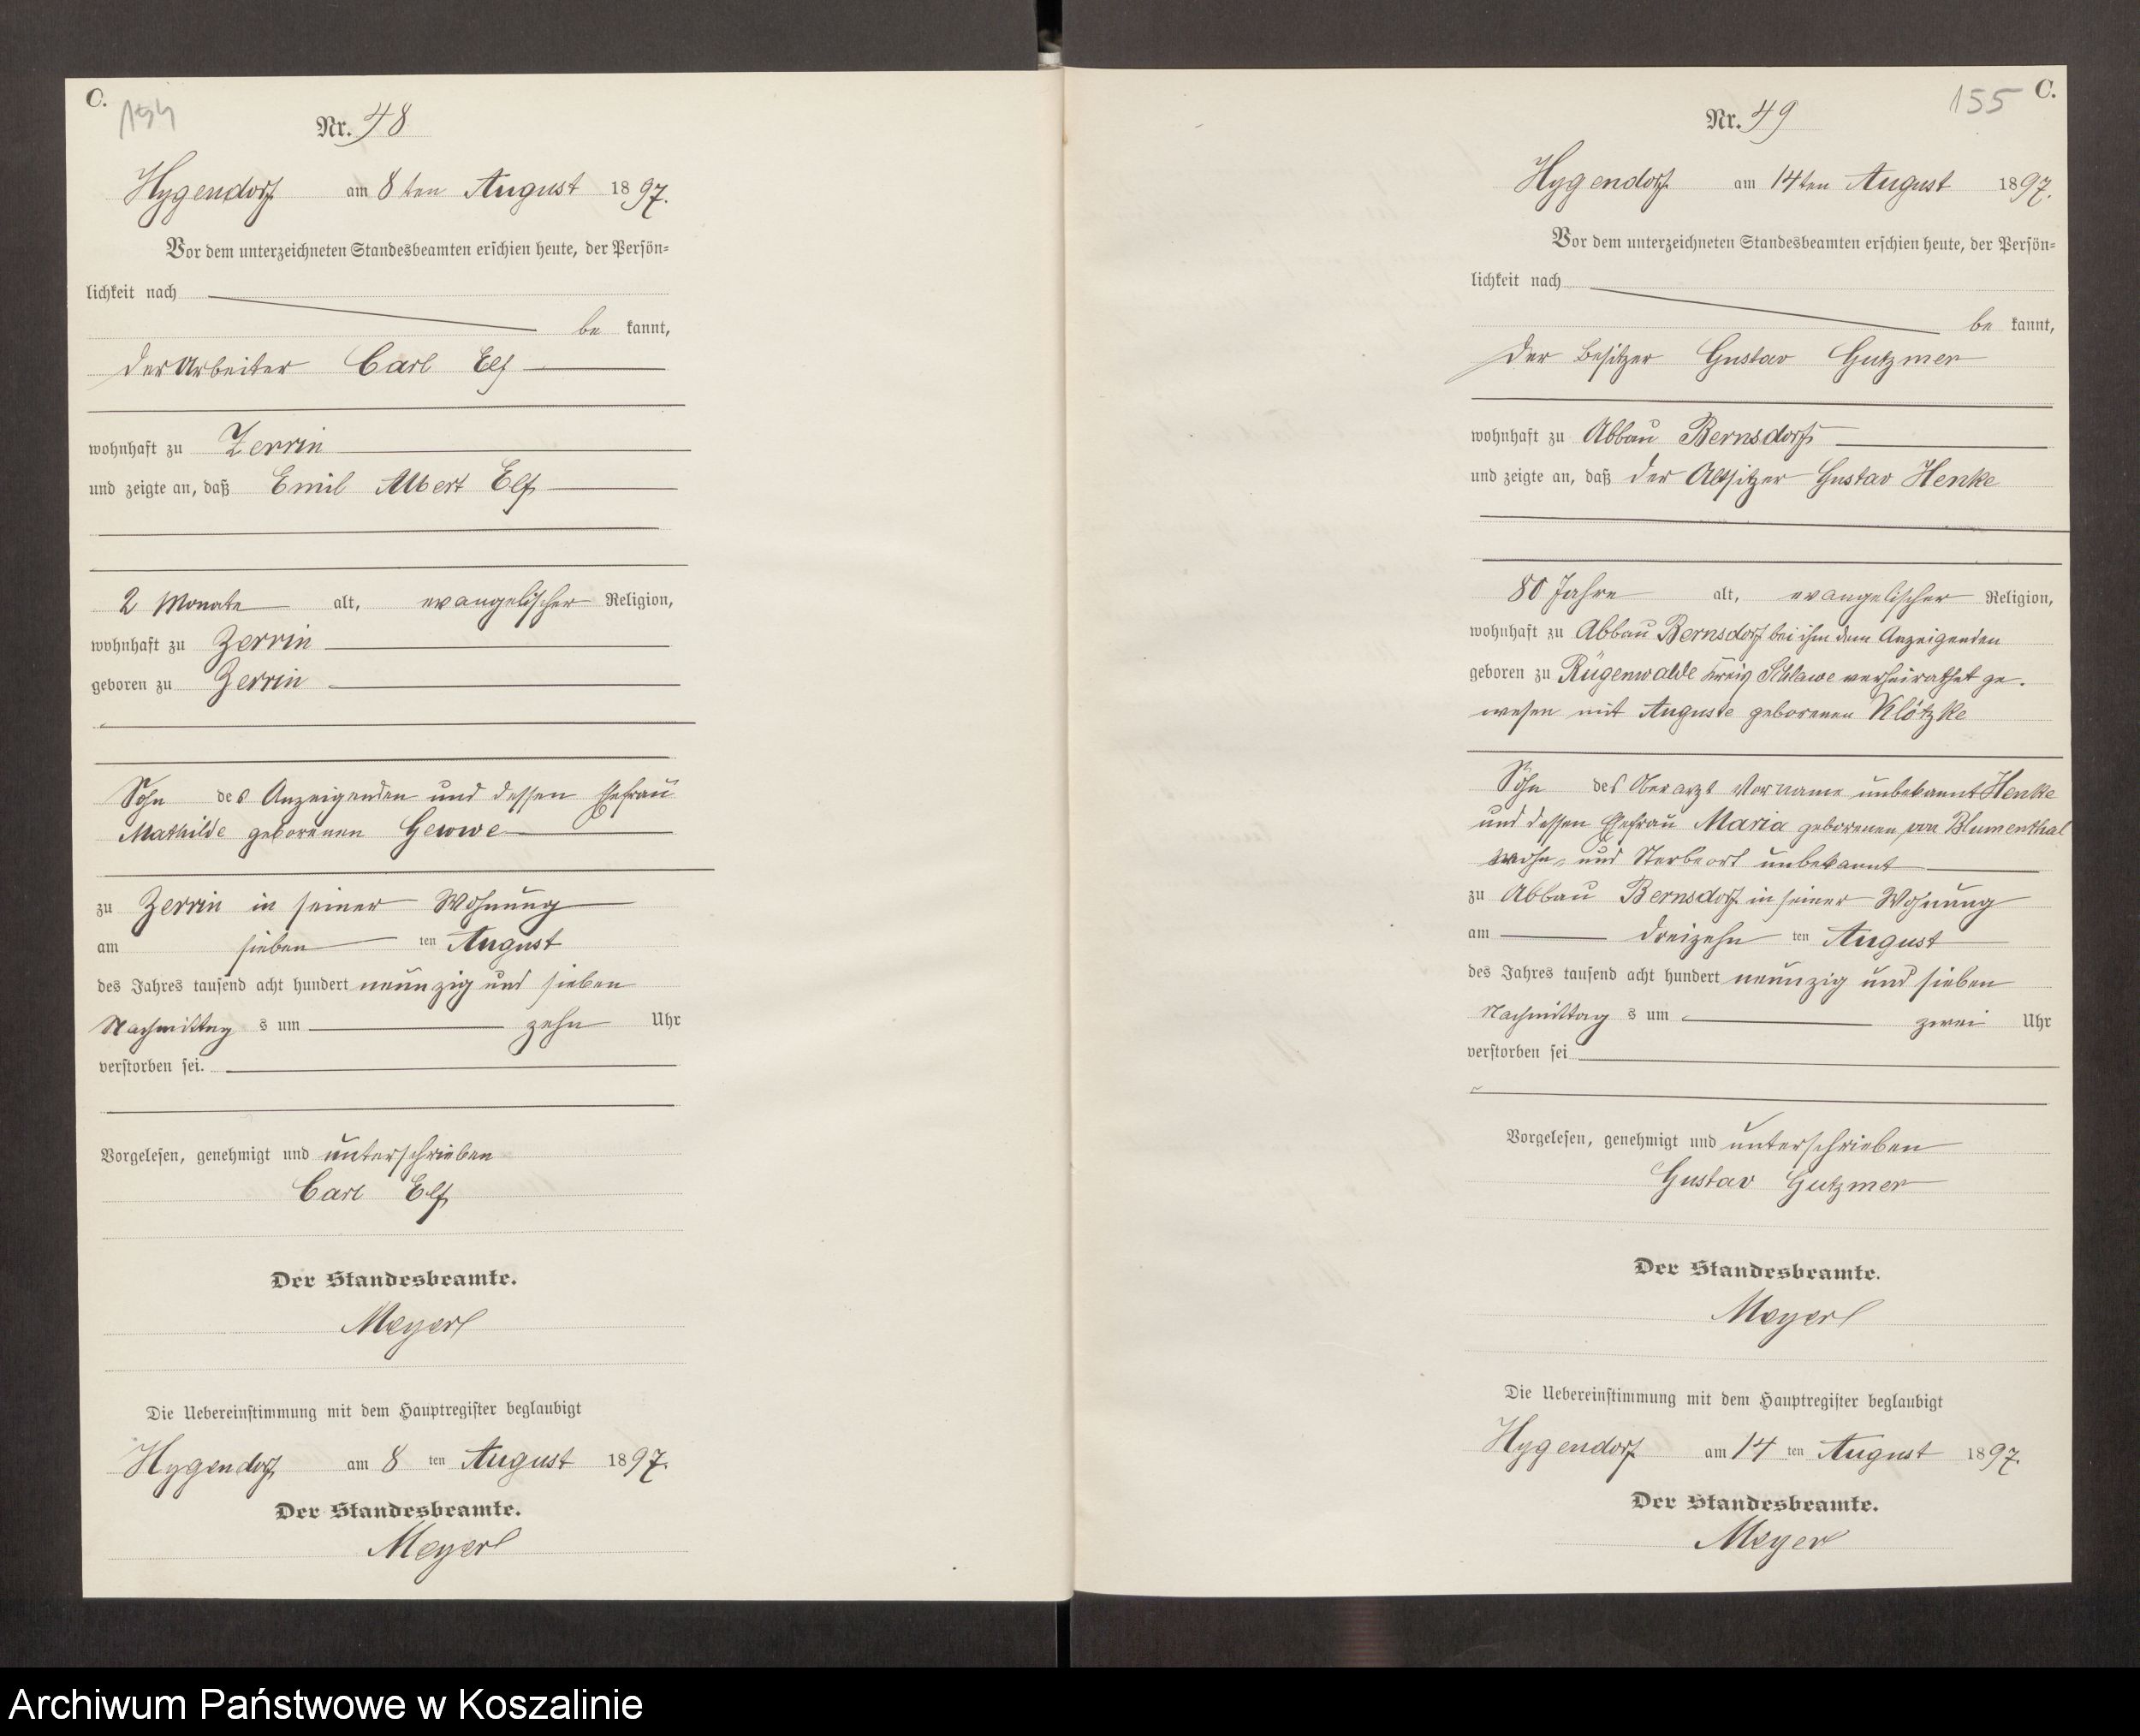 C.
154
Nr. 48
Hygendorf am 8ten August 1897.
Vor dem unterzeichneten Standesbeamten erschien heute, der Persön-
lichkeit nach
be kannt,
der Arbeiter Carl Elf
wohnhaft zu Zerrin
und zeigte an, daß Emil Albert Elf
2 Monate alt, evangelischer Religion,
wohnhaft zu Zerrin
geboren zu Zerrin
Sohn des Anzeigenden und dessen Ehefrau
Mathilde geborenen Gewwe
zu Zerrin in seiner Wohnung
am sieben ten August
des Jahres tausend acht hundert neunzig und sieben
Nachmittag s um zehn Uhr
verstorben sei.
Vorgelesen, genehmigt und unterschrieben
Carl Elf
Der Standesbeamte.
Meyerl
Die Uebereinstimmung mit dem Hauptregister beglaubigt
Hygendorf am 8 ten August 1897.
Der Standesbeamte.
Meyerl
155 C.
Nr. 49
Hygendorf am 14ten August 1897.
Vor dem unterzeichneten Standesbeamten erschien heute, der Persön-
lichkeit nach
be kannt,
der Besitzer Gustav Gutzmer
wohnhaft zu Abbau Bernsdorf
und zeigte an, daß der Altsitzer Gustav Henke
80 Jahre alt, evangelischer Religion,
wohnhaft zu Abbau Bernsdorf bei ihm dem Anzeigenden
geboren zu Rügenwalde Kreis Schlawe verheirathet ge-
wesen mit Auguste geborenen Klötzke
Sohn des Oberarzt Vorname unbekannt Henke
und dessen Ehefrau Maria geborenen von Blumenthal
Wohn- und Sterbeort unbekannt
zu Abbau Bernsdorf in seiner Wohnung
am dreizehn ten August
des Jahres tausend acht hundert neunzig und sieben
Nachmittag s um zwei Uhr
verstorben sei
Vorgelesen, genehmigt und unterschrieben
Gustav Gutzmer
Der Standesbeamte.
Meyerl
Die Uebereinstimmung mit dem Hauptregister beglaubigt
Hygendorf am 14 ten August 1897.
Der Standesbeamte.
Meyerl
Archiwum Państwowe w Koszalinie